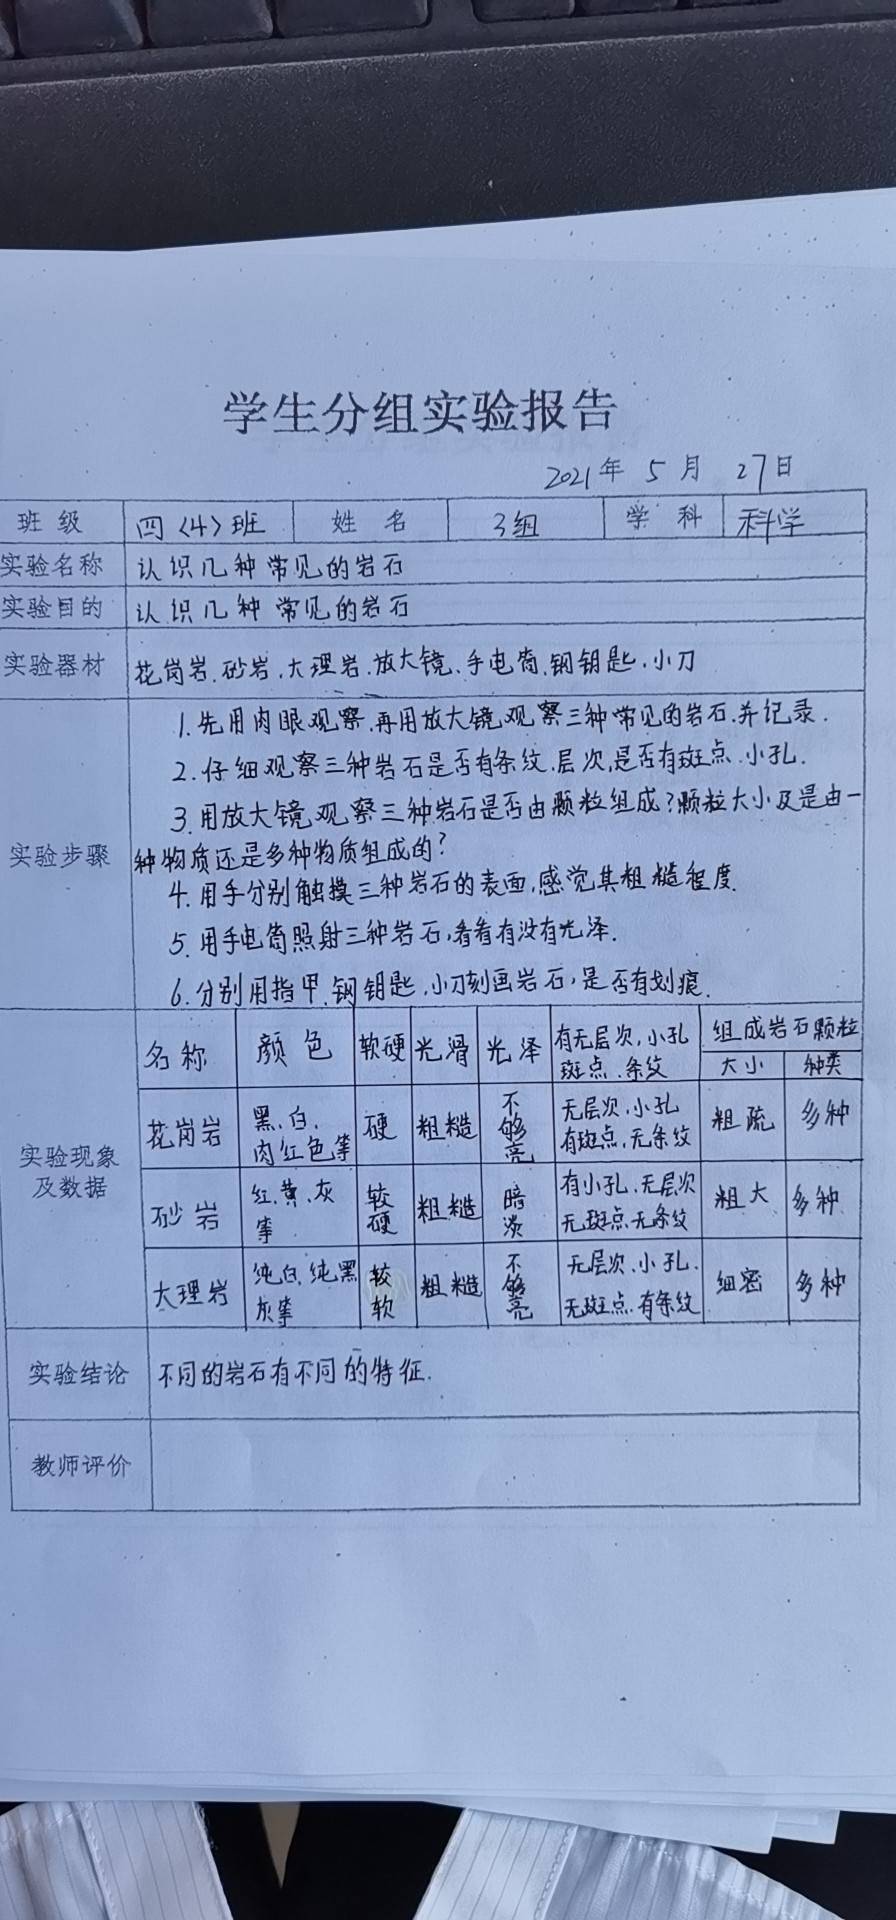 学生分组实验报告
2021年 5月 27日
班级 四〈4〉班 姓名 3组 学科 科学
实验名称 认识几种常见的岩石
实验目的 认识几种常见的岩石
实验器材 花岗岩、砂岩、大理岩、放大镜、手电筒、钢钥匙、小刀
实验步骤
1.先用肉眼观察,再用放大镜观察三种常见的岩石,并记录.
2.仔细观察三种岩石是否有条纹、层次,是否有斑点、小孔.
3.用放大镜观察三种岩石是否由颗粒组成?颗粒大小及是由一
种物质还是多种物质组成的?
4.用手分别触摸三种岩石的表面,感觉其粗糙程度.
5.用手电筒照射三种岩石,看看有没有光泽.
6.分别用指甲、钢钥匙、小刀刻画岩石,是否有划痕.
实验现象
及数据
名称 颜色 软硬 光滑 光泽 有无层次、小孔 组成岩石颗粒
斑点、条纹 大小 种类
花岗岩 黑、白、 硬 粗糙 不够亮 无层次、小孔 粗疏 多种
肉红色等 有斑点、无条纹
砂岩 红、黄、灰 较硬 粗糙 暗淡 有小孔、无层次 粗大 多种
等 无斑点、无条纹
大理岩 纯白、纯黑 较软 粗糙 不够亮 无层次、小孔、 细密 多种
灰等 无斑点、有条纹
实验结论 不同的岩石有不同的特征.
教师评价